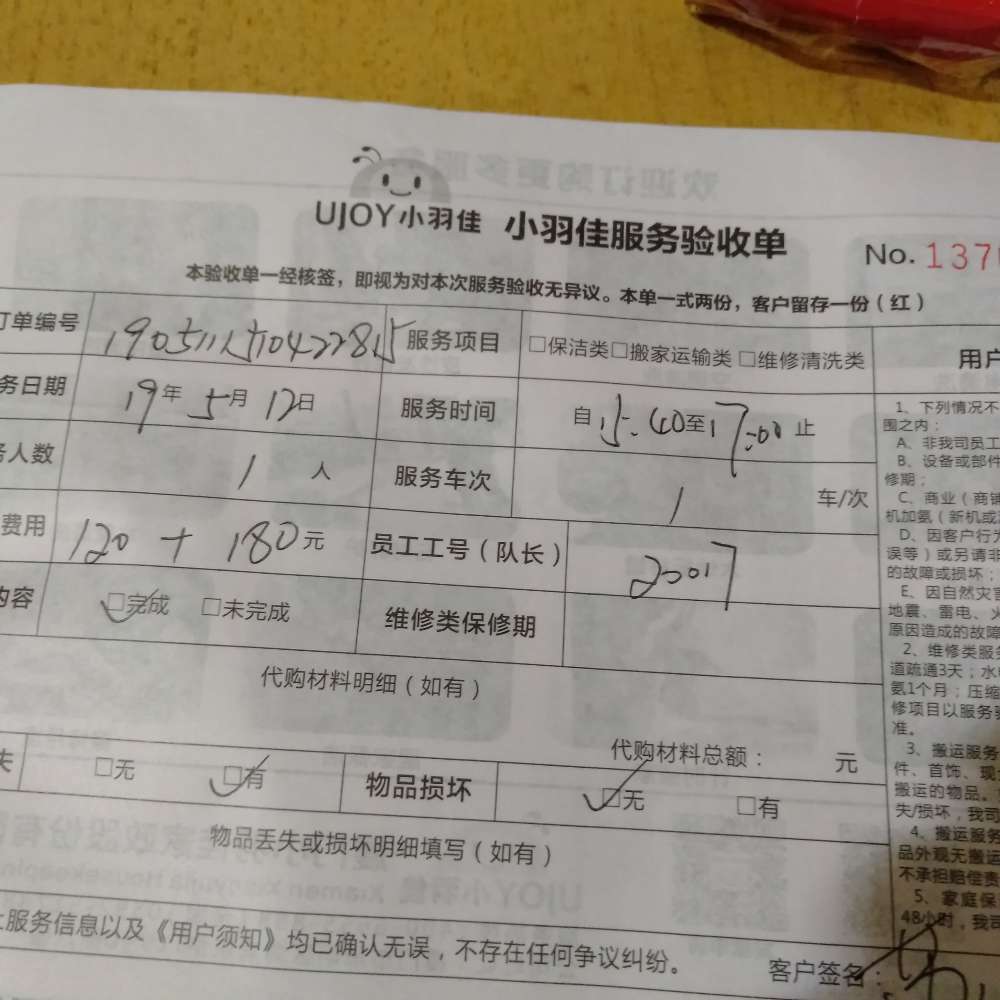 UJOY小羽佳 小羽佳服务验收单 No. 137
本验收单一经核签，即视为对本次服务验收无异议。本单一式两份，客户留存一份（红）
订单编号 服务项目 □保洁类□搬家运输类 □维修清洗类 用户
务日期 19年 5月 12日 服务时间 自 15:40至17:00 止
务人数 1 人 服务车次 1 车/次
费用 120 + 180元 员工工号（队长） 2001
内容 □完成 □未完成 维修类保修期
代购材料明细（如有）
代购材料总额： 元
失 □无 □有 物品损坏 □无 □有
物品丢失或损坏明细填写（如有）
服务信息以及《用户须知》均已确认无误，不存在任何争议纠纷。
客户签名：
1、下列情况不
围之内：
A、非我司员工
B、设备或部件
修期；
C、商业（商铺
机加氨（新机或
D、因客户行为
误等）或另请非
的故障或损坏；
E、因自然灾害
地震、雷电、火
原因造成的故障
2、维修类服务
道疏通3天；水
氨1个月；压缩
修项目以服务验
准。
3、搬运服务
件、首饰、现
搬运的物品。
失/损坏，我司
4、搬运服务
品外观无搬运
不承担赔偿责
5、家庭保
48小时，我司